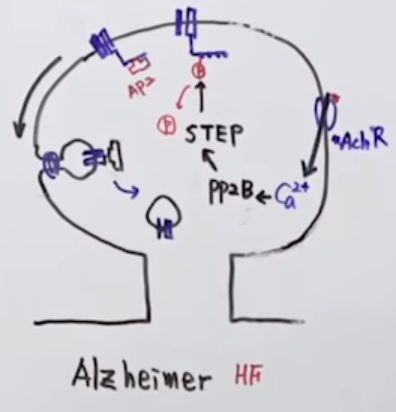 AP2
P
P
STEP
AchR
PP2B ← Ca²⁺
Alzheimer HF